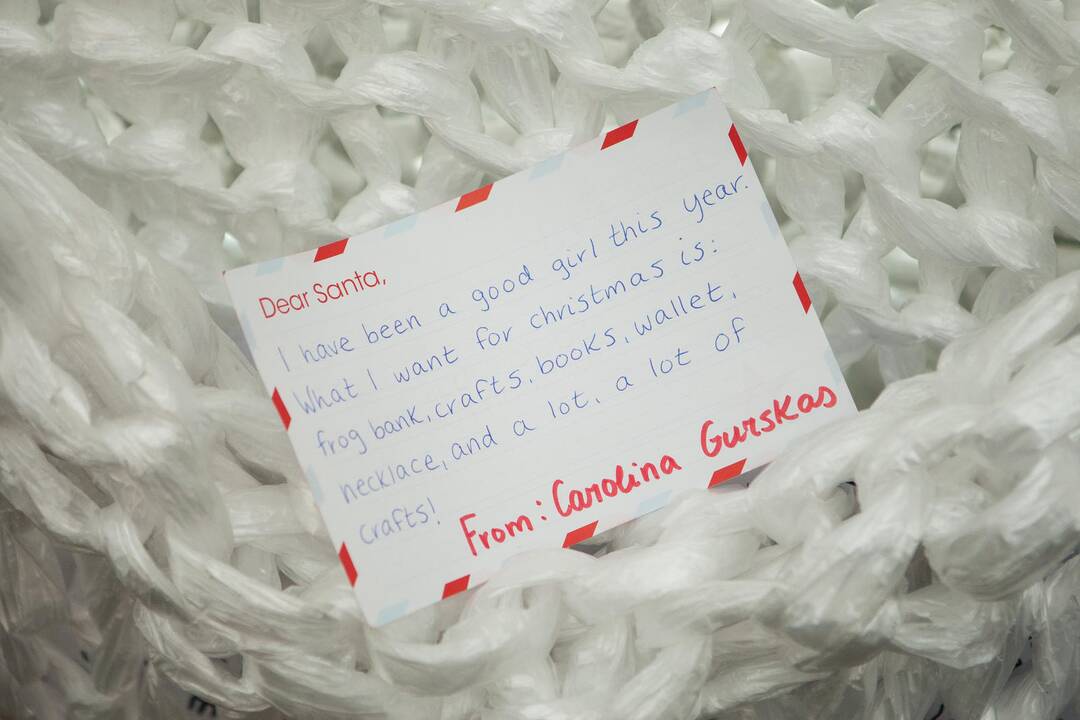 Dear Santa,
I have been a good girl this year.
What I want for christmas is:
frog bank, crafts, books, wallet,
necklace, and a lot, a lot of
crafts!
From: Carolina Gurskas